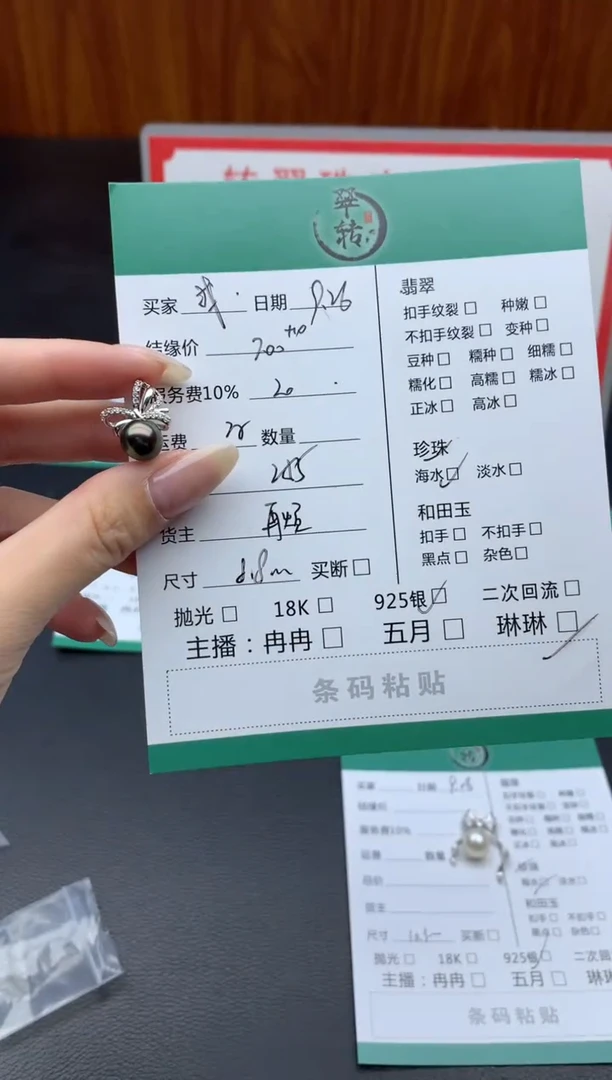 翠转
买家 日期 9.26
结缘价 200 +40
服务费10% 20
运费 25 数量
285
货主
尺寸 8.8m 买断
抛光 18K 925银 二次回流
主播：冉冉 五月 琳琳
条码粘贴
翡翠
扣手纹裂 种嫩
不扣手纹裂 变种
豆种 糯种 细糯
糯化 高糯 糯冰
正冰 高冰
珍珠
海水 淡水
和田玉
扣手 不扣手
黑点 杂色
买家 日期 9.26
结缘价
服务费10%
运费 数量
总价
货主
尺寸 买断
抛光 18K 925银 二次回
主播：冉冉 五月 琳琳
条码粘贴
和田玉